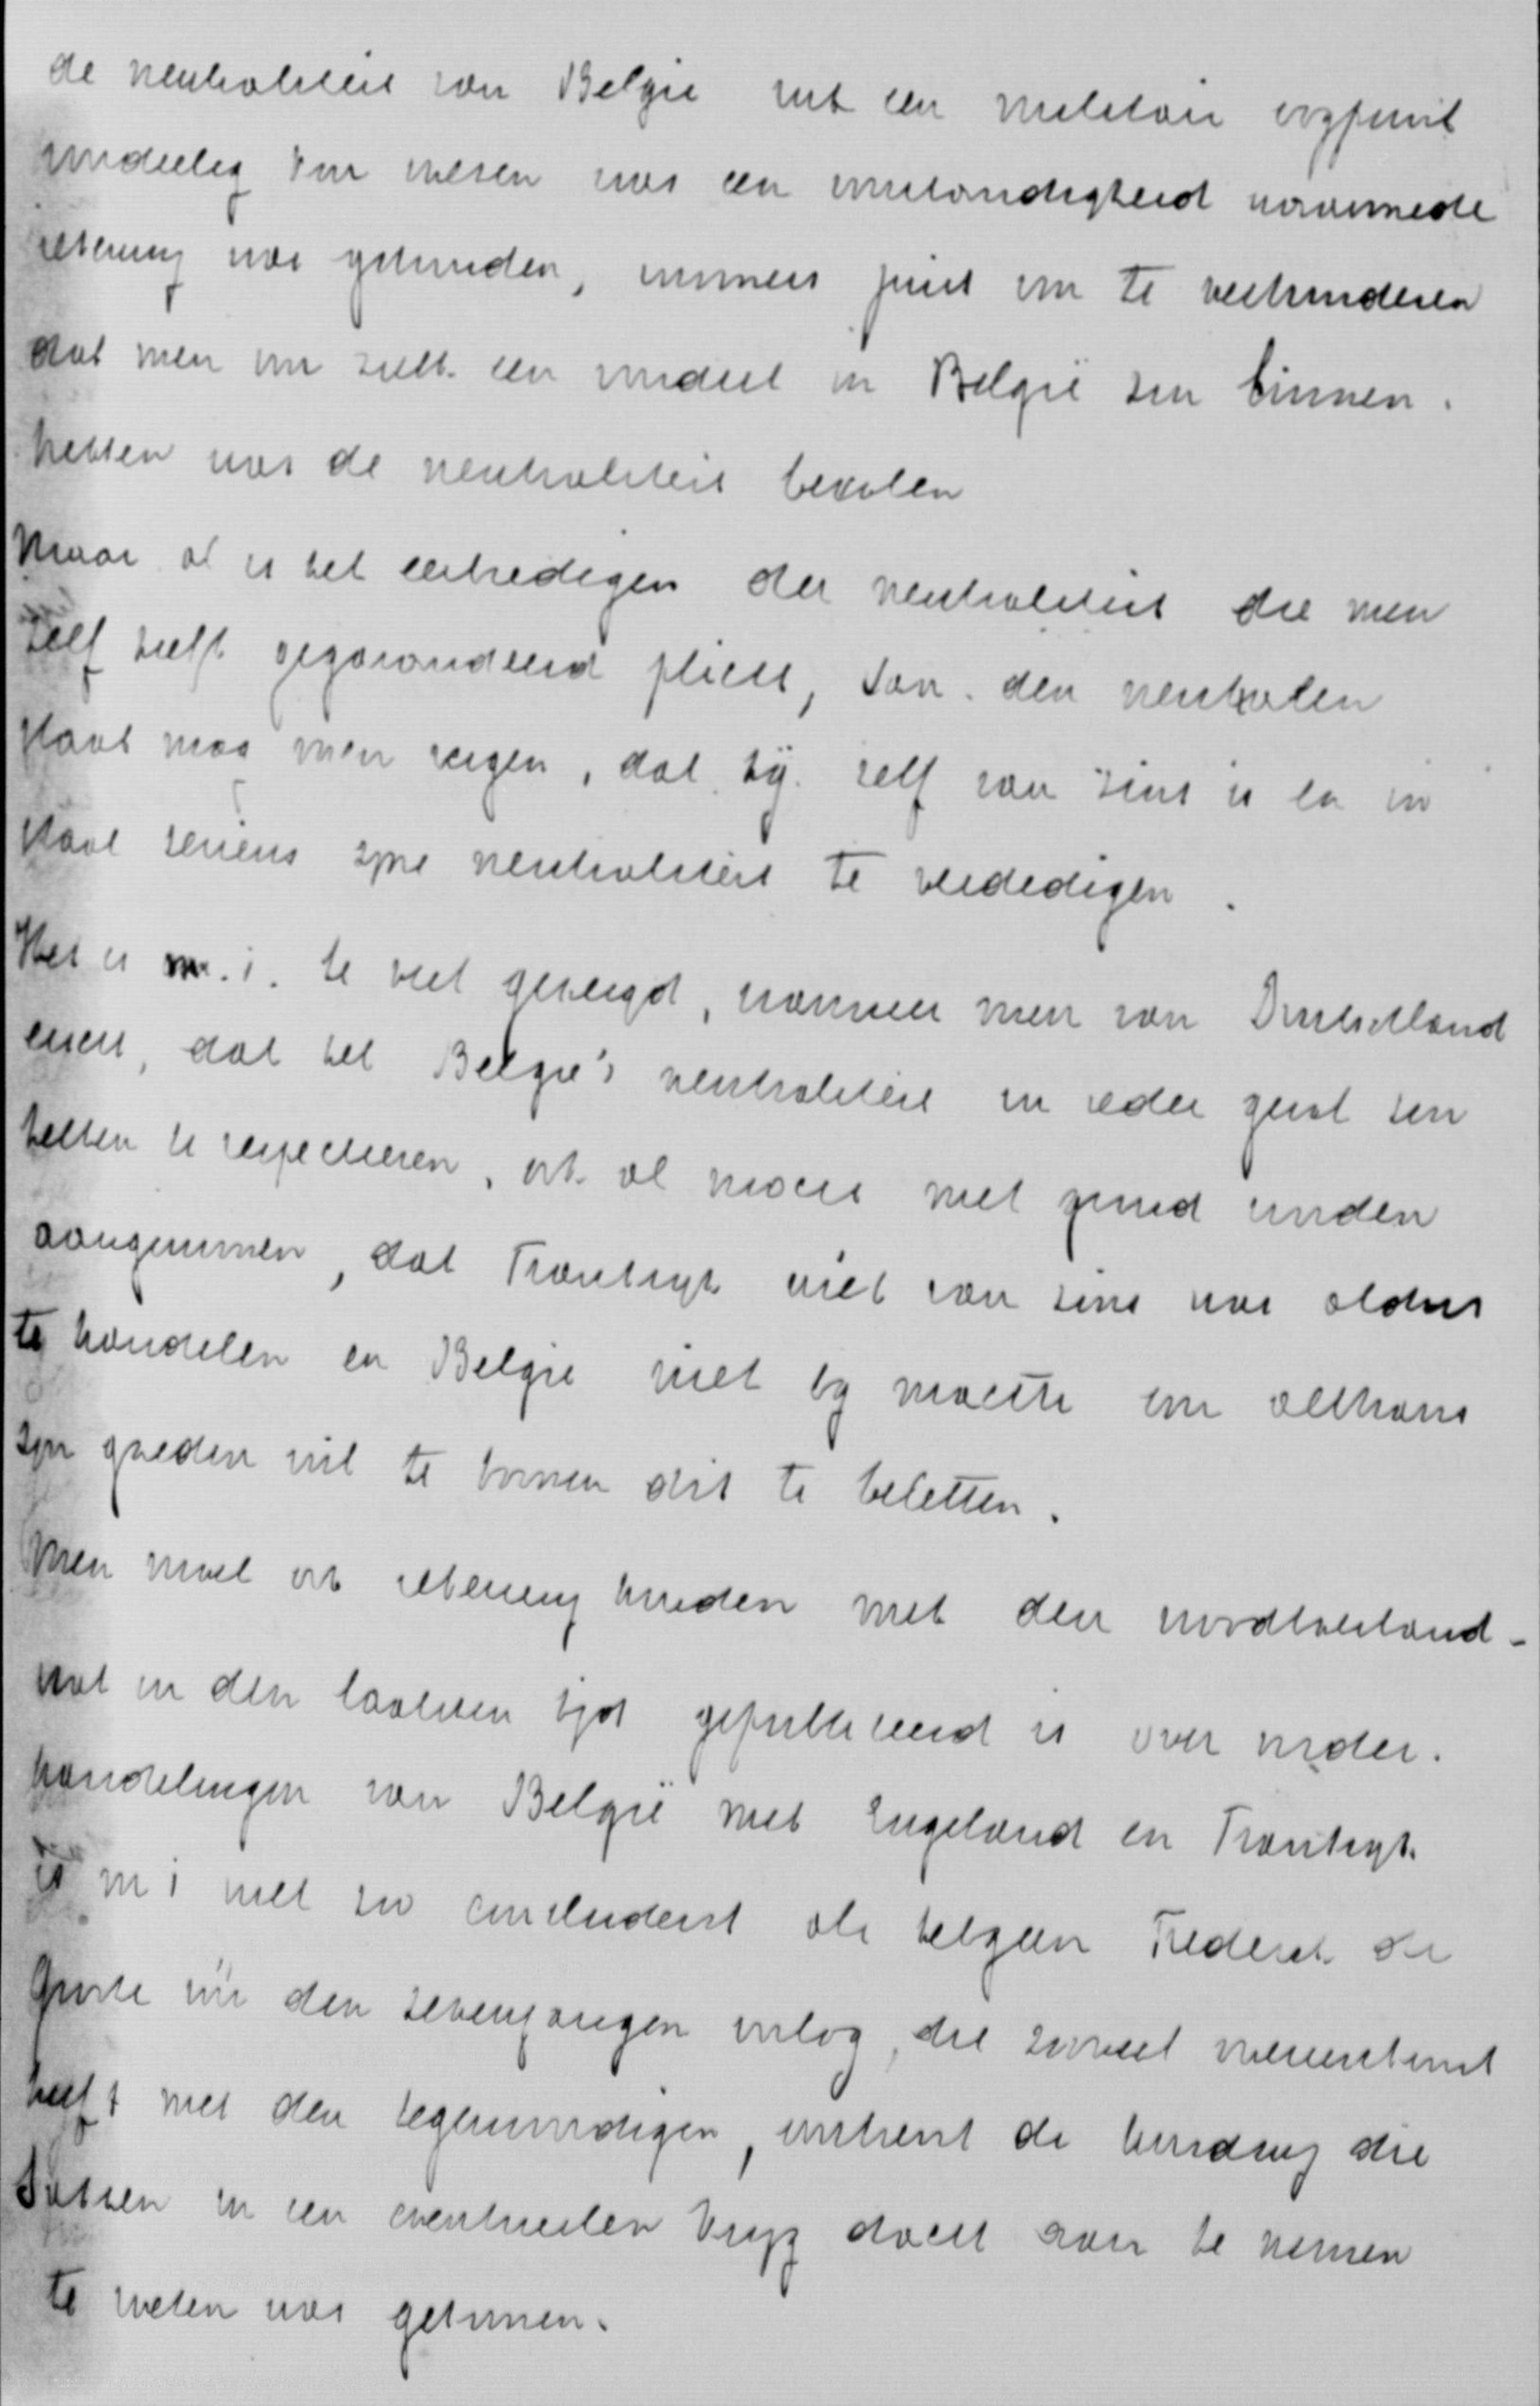 de neutraliteit van België uit een militair oogpunt
voordeelig kon wezen was een omstandigheid waarmede
rekening was gehouden, immers juist om te verhinderen
dat men om zulk een voordeel in België zou binnen-
rukken was de neutraliteit bevolen
Maar al is het eerbiedigen der neutraliteit die men
zelf heeft gegarandeerd plicht, van den neutralen
staat mag men vergen, dat hij zelf van zins is en in
staat serieus zijne neutraliteit te verdedigen.
Het is m.i. te veel gevergd, wanneer men van Duitschland
eischt, dat het België's neutraliteit in ieder geval zou
hebben te respecteeren, ook al mocht met grond worden
aangenomen, dat Frankrijk niet van zins was aldus
te handelen en België niet bij machte om althans
zijn goeden wil te toonen dit te beletten.
Men moet ook rekening houden met den noodtoestand -
wat in den laatsten tijd gepubliceerd is over onder-
handelingen van België met Engeland en Frankrijk
is m i niet zoo concludent als hetgeen Frederik de
Groote vóór den zevenjarigen oorlog, die zooveel overeenkomst
heeft met den tegenwoordigen, omtrent de houding die
Saksen in een eventueelen krijg dacht aan te nemen
te weten was gekomen.